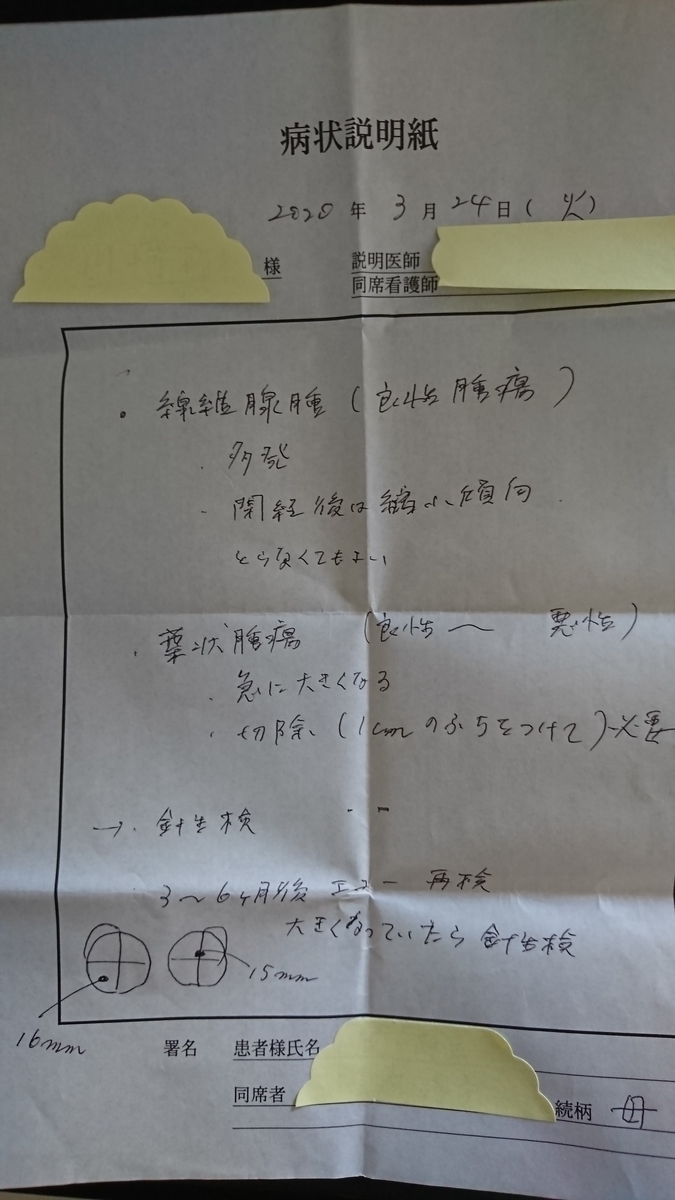 病状説明紙
2020年 3月 24日(火)
様
説明医師
同席看護師
・線維腺腫(良性腫瘍)
・多発
・閉経後は縮小傾向
とらなくてもよい
・葉状腫瘍 (良性〜 悪性)
・急に大きくなる
・切除(1cmのふちをつけて)必要
→・針生検
・3〜6ヶ月後 エコー 再検
大きくなっていたら 針生検
15mm
16mm
署名 患者様氏名
同席者 続柄 母